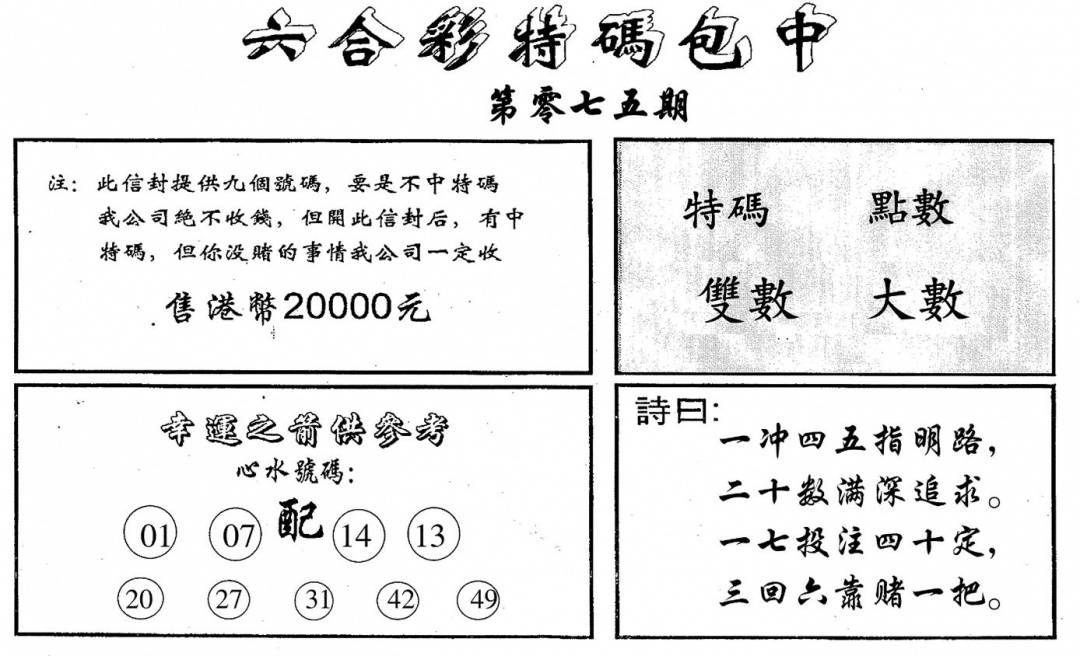 六合彩特碼包中
第零七五期
注：此信封提供九個號碼，要是不中特碼
我公司絕不收錢，但開此信封后，有中
特碼，但你没賭的事情我公司一定收
售港幣20000元
特碼 點數
雙數 大數
幸運之箭供參考
心水號碼：
01 07 配 14 13
20 27 31 42 49
詩曰：
一冲四五指明路，
二十数满深追求。
一七投注四十定，
三回六靠赌一把。